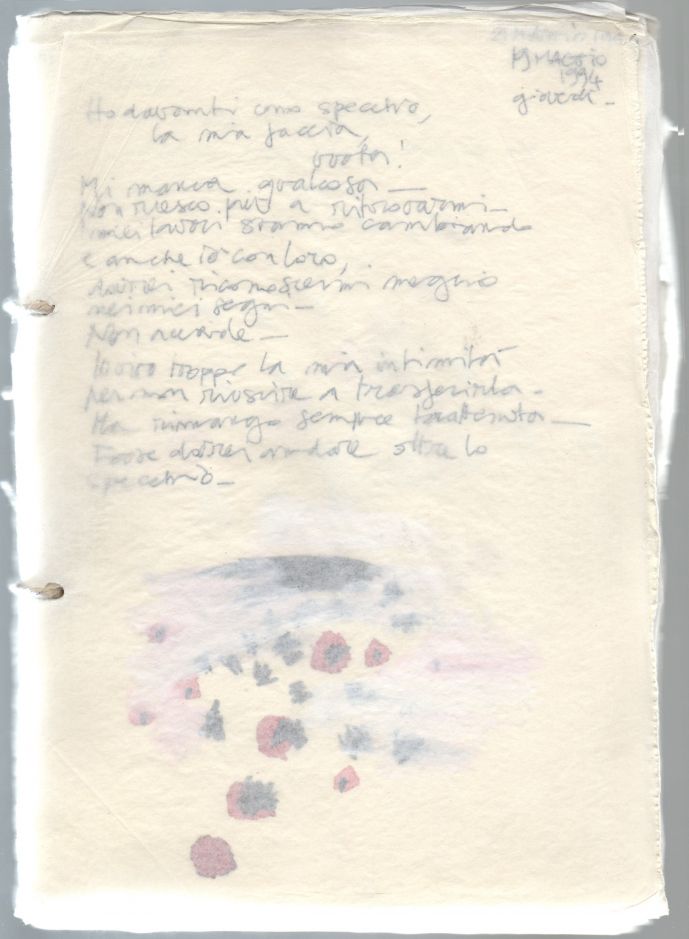 19 MAGGIO
1994
giovedì_
Ho davanti uno specchio,
la mia faccia,
vuota!
Mi manca qualcosa_
Non riesco più a ritrovarmi_
I miei lavori stanno cambiando
e anche io con loro,
dovrei riconoscermi meglio
nei miei segni_
Non accade_
Vivo troppo la mia intimità
per non riuscire a trasferirla_
Ma rimango sempre trattenuta_
Forse dovrei andare oltre lo
specchio_